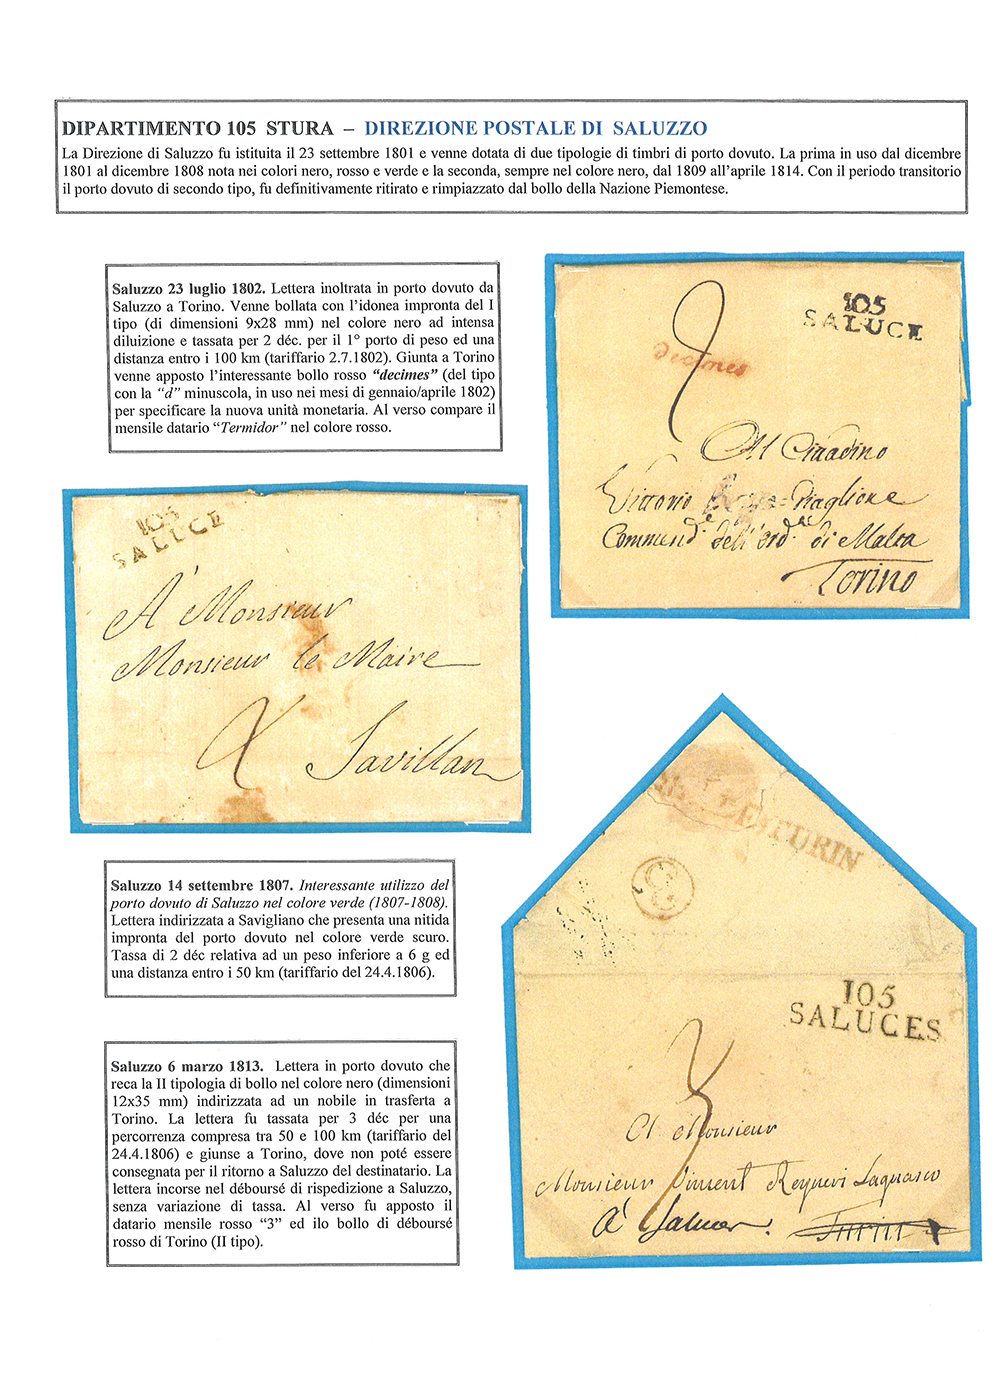 DIPARTIMENTO 105 STURA – DIREZIONE POSTALE DI SALUZZO
La Direzione di Saluzzo fu istituita il 23 settembre 1801 e venne dotata di due tipologie di timbri di porto dovuto. La prima in uso dal dicembre
1801 al dicembre 1808 nota nei colori nero, rosso e verde e la seconda, sempre nel colore nero, dal 1809 all'aprile 1814. Con il periodo transitorio
il porto dovuto di secondo tipo, fu definitivamente ritirato e rimpiazzato dal bollo della Nazione Piemontese.
Saluzzo 23 luglio 1802. Lettera inoltrata in porto dovuto da
Saluzzo a Torino. Venne bollata con l'idonea impronta del I
tipo (di dimensioni 9x28 mm) nel colore nero ad intensa
diluizione e tassata per 2 déc. per il 1° porto di peso ed una
distanza entro i 100 km (tariffario 2.7.1802). Giunta a Torino
venne apposto l'interessante bollo rosso "decimes" (del tipo
con la "d" minuscola, in uso nei mesi di gennaio/aprile 1802)
per specificare la nuova unità monetaria. Al verso compare il
mensile datario "Termidor" nel colore rosso.
105
SALUCE
2
decimes
Al Cittadino
Vittorio Piaglione
Commend.de dell'ord.de di Malta
Torino
105
SALUCE
A Monsieur
Monsieur le Maire
2 Savillan
Saluzzo 14 settembre 1807. Interessante utilizzo del
porto dovuto di Saluzzo nel colore verde (1807-1808).
Lettera indirizzata a Savigliano che presenta una nitida
impronta del porto dovuto nel colore verde scuro.
Tassa di 2 déc relativa ad un peso inferiore a 6 g ed
una distanza entro i 50 km (tariffario del 24.4.1806).
Saluzzo 6 marzo 1813. Lettera in porto dovuto che
reca la II tipologia di bollo nel colore nero (dimensioni
12x35 mm) indirizzata ad un nobile in trasferta a
Torino. La lettera fu tassata per 3 déc per una
percorrenza compresa tra 50 e 100 km (tariffario del
24.4.1806) e giunse a Torino, dove non poté essere
consegnata per il ritorno a Saluzzo del destinatario. La
lettera incorse nel déboursé di rispedizione a Saluzzo,
senza variazione di tassa. Al verso fu apposto il
datario mensile rosso "3" ed ilo bollo di déboursé
rosso di Torino (II tipo).
DE TURIN
3
105
SALUCES
3
A Monsieur
Monsieur Vincent Reyneri Lagnasco
à Saluces. Turin